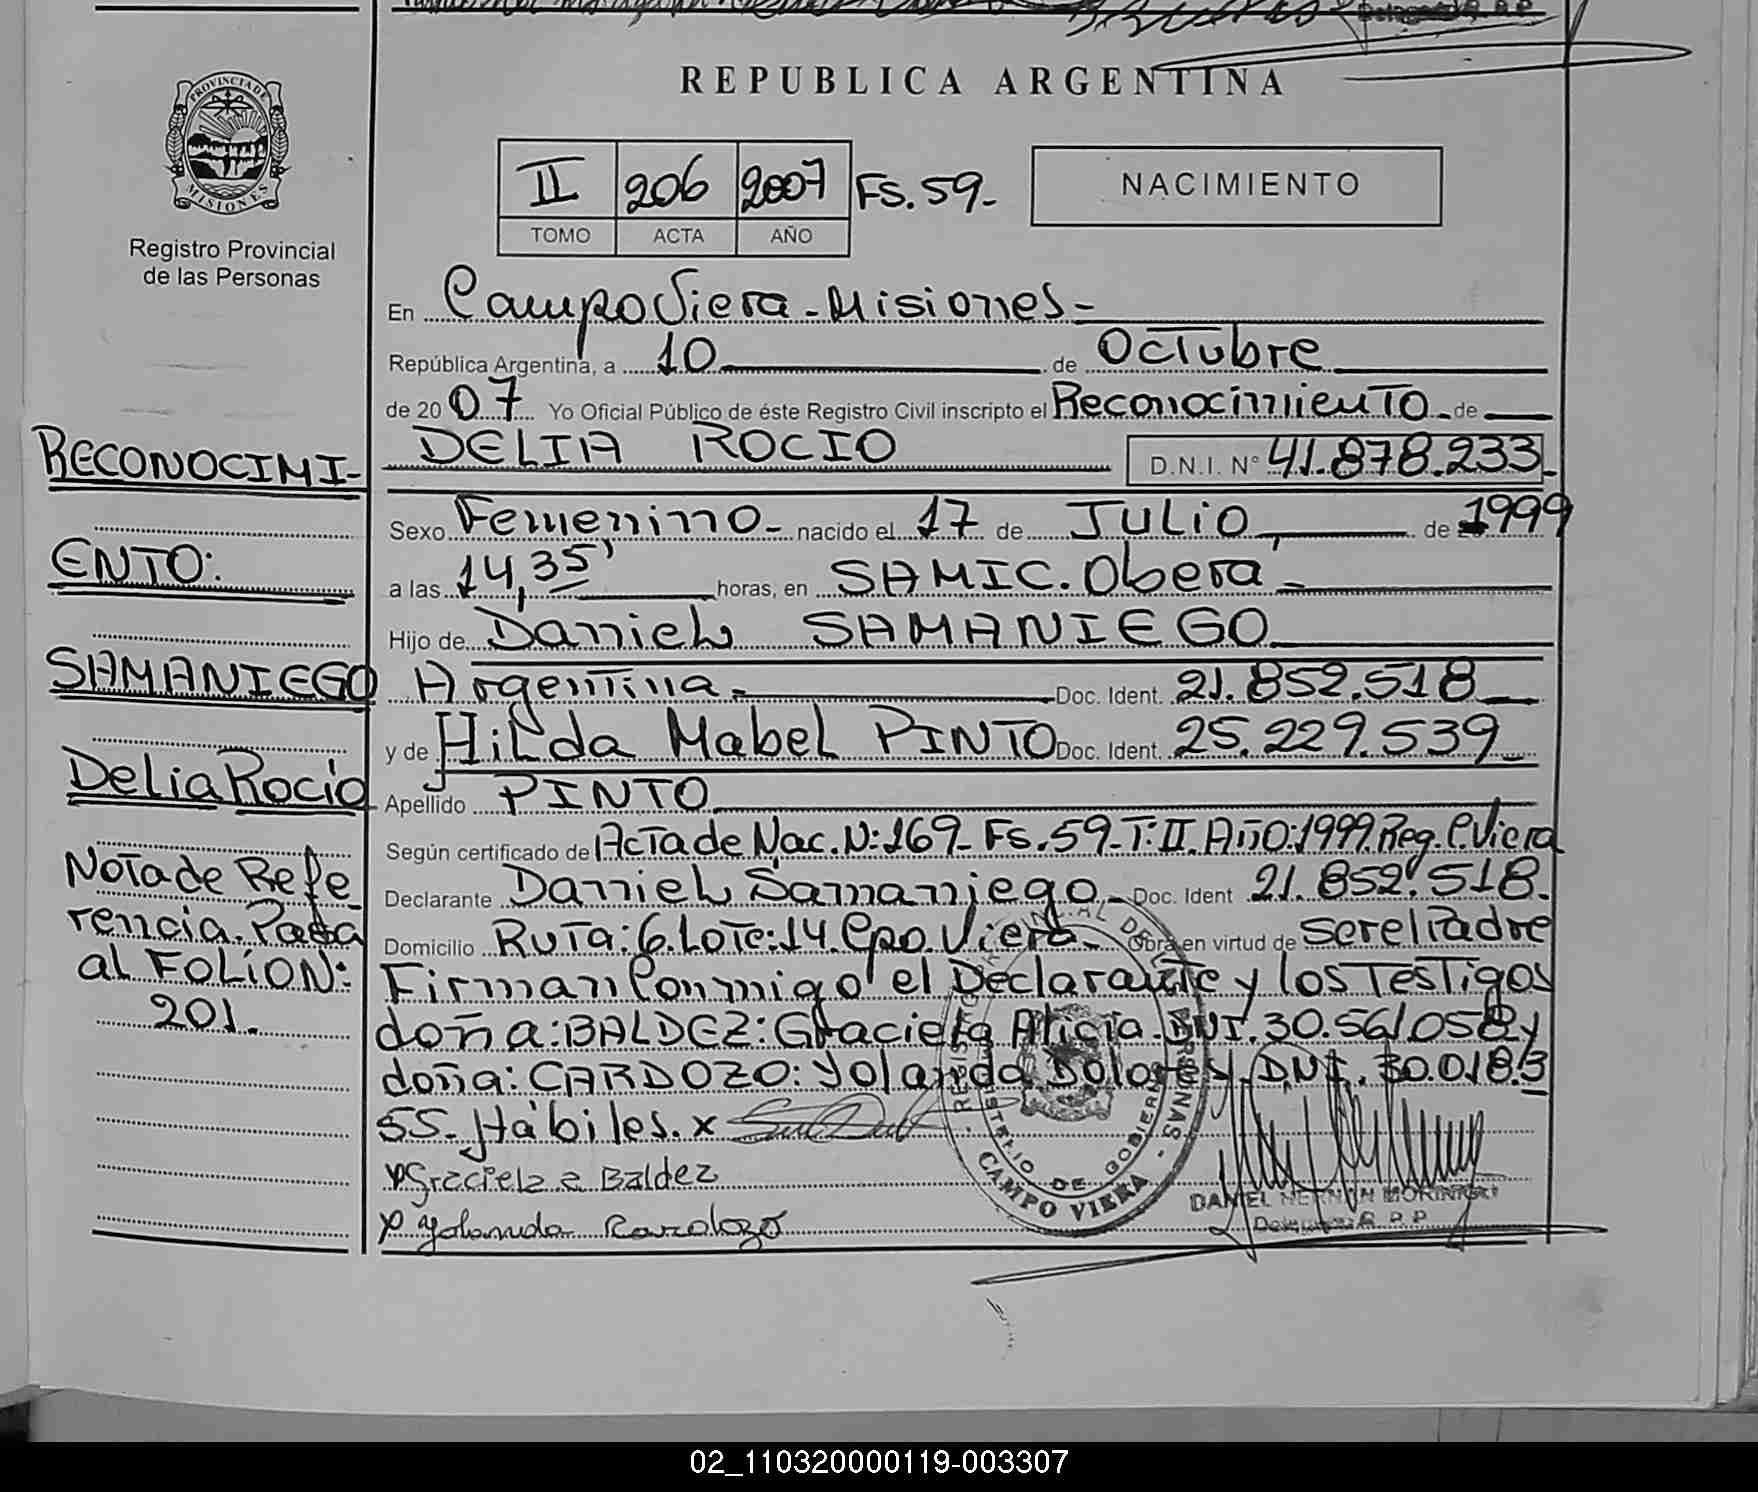 REPUBLICA ARGENTINA
PROVINCIA DE
MISIONES
Registro Provincial
de las Personas
II 206 2007 FS. 59-
TOMO ACTA AÑO
NACIMIENTO
En Campo Viera - Misiones -
República Argentina, a 10 de Octubre
de 20 07 Yo Oficial Público de éste Registro Civil inscripto el Reconocimiento de
DELIA ROCIO D.N.I. N° 41.878.233.
Sexo Femenino - nacido el 17 de Julio de 1999
a las 14,35' horas, en SAMIC. Oberá -
Hijo de Daniel SAMANIEGO
Argentina - Doc. Ident. 21.852.518
y de Hilda Mabel PINTO Doc. Ident. 25.229.539
Apellido PINTO
Según certificado de Acta de Nac. N: 169- Fs. 59- T: II. Año: 1999. Reg. C. Viera
Declarante Daniel Samaniego - Doc. Ident 21.852.518.
Domicilio Ruta: 6. Lote: 14. Cpo. Viera - Obra en virtud de ser el Padre
Firman Conmigo el Declarante y los Testigos
doña: BALDEZ: Graciela Alicia. DNI. 30.561058 y
doña: CARDOZO: Yolanda DNI. 30.018.3
55. Hábiles. x
x Graciela a Baldez
x Yolanda Cardozo
RECONOCIMI-
ENTO:
SAMANIEGO
Delia Rocío
Nota de Refe
rencia. Pasa
al FOLION:
201.
CAMPO VIERA
DANIEL HERNAN
02_110320000119-003307